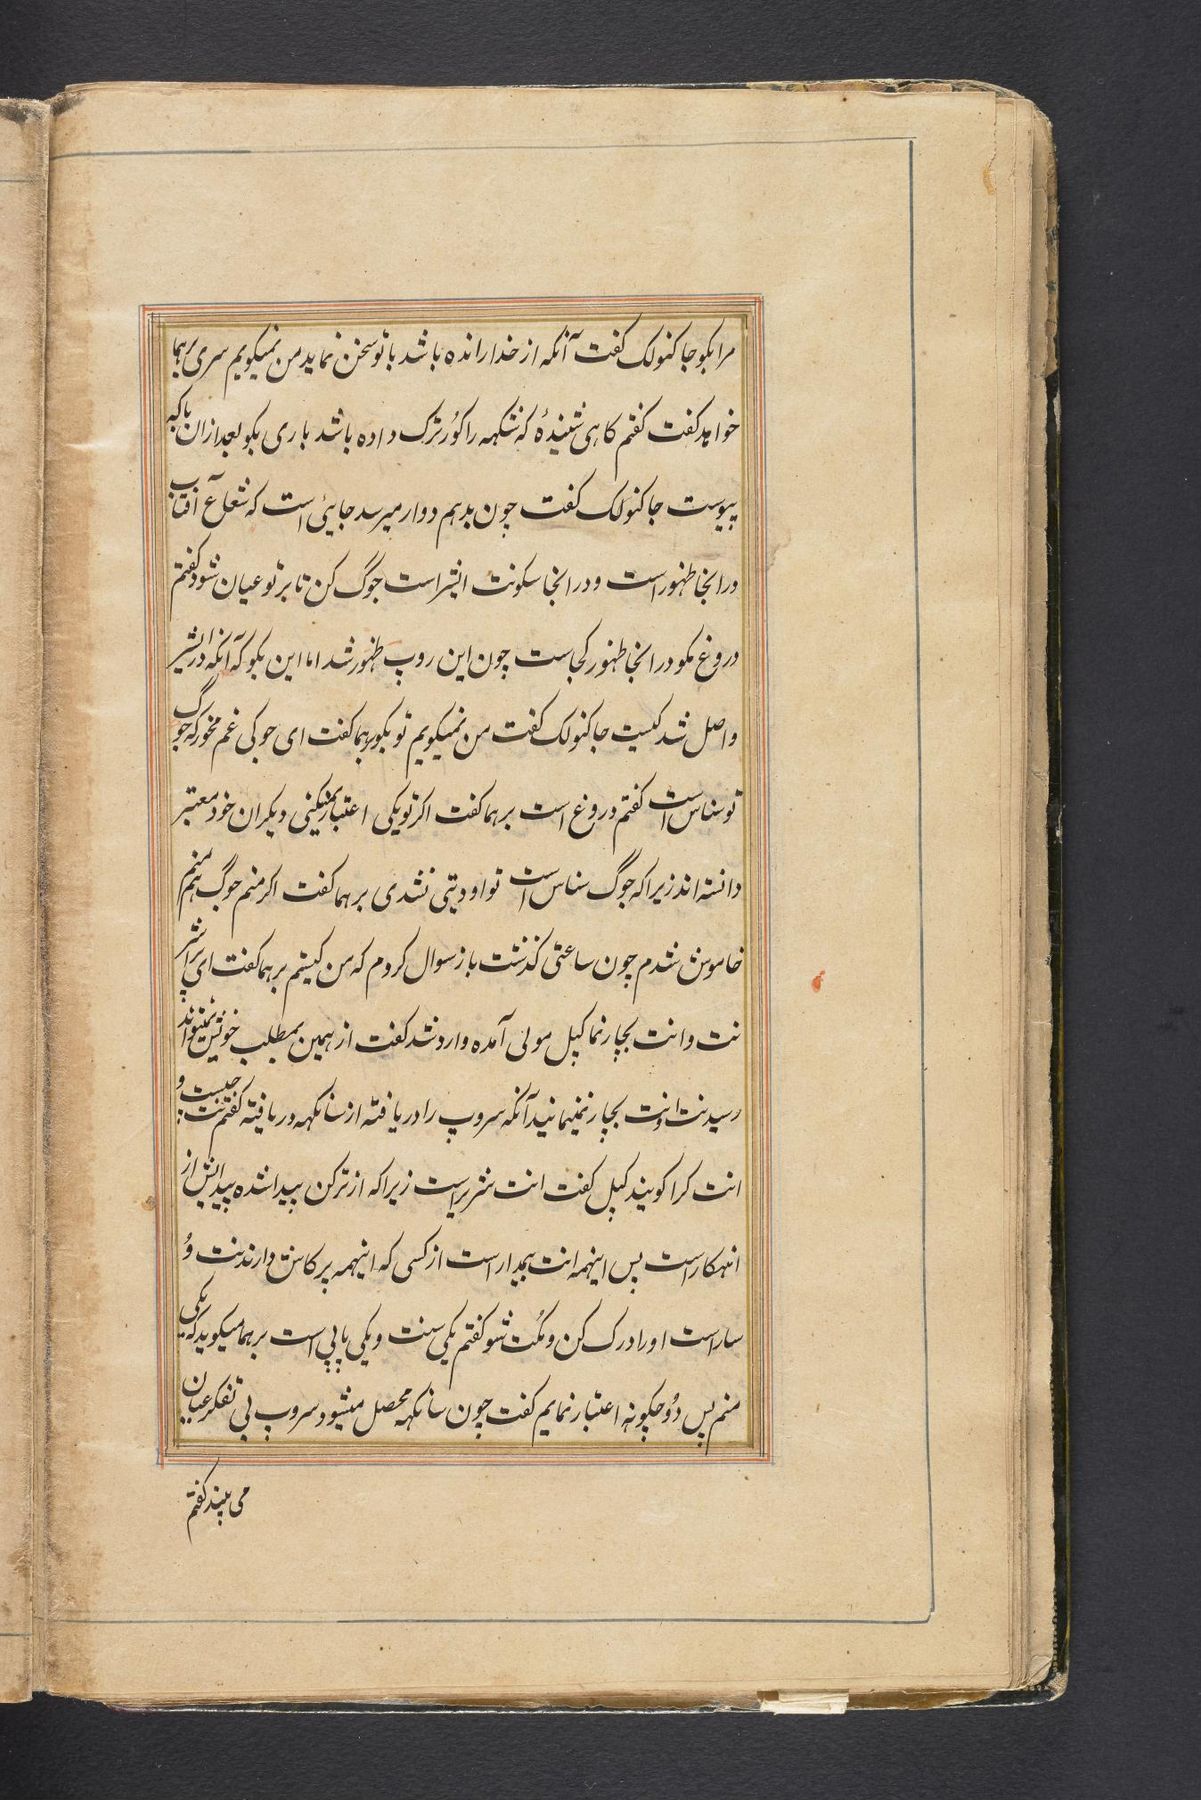 مرا بکو جاکنولک کفت آنکه از خدا رانده باشد با تو سخن نماید من نمیکویم سری برهما
خواهد کفت کفتم کاهی شنیدهٔ که شکهه را کورُ ترک داده باشد باری بکو بعد ازان باکیه
پیوست جاکنولک کفت چون بدهم دوار میرسد جایئی است که شعاع آفتاب
درانجا ظهور است و درانجا سکونت ایشر است جوگ کن تا بر تو عیان شود کفتم
دروغ مکو درانجا ظهور کجاست چون این روپ ظهور شد اما این بکو که آنکه در ایشر
واصل شد کیست جاکنولک کفت من نمیکویم تو بکو برهما کفت ای جوکی غم مخور که جوگ
تو سناس است کفتم دروغ است برهما کفت اکر تو یکی اعتبار نمیکنی دیکران خود معتبر
دانسته اند زیرا که جوگ سناس است تو اودیتی نشدی برهما کفت اکر منم جوگ هم منم
خاموش شدم چون ساعتی کذشت باز سوال کردم که من کیستم برهما کفت ای پراشر
نت وانت بچار نما کپل مولی آمده وارد شد کفت از همین بمطلب خویش نمیتواند
رسید نت وانت بچار نمینمانید آنکه سروپ را دریافته از سانکهه دریافته کفتم نت چیست و
انت کرا کویند کپل کفت انت شریر است زیرا که از ترکن پیدا شده پیدایش از
انهکار است پس اینهمه انت بیدار است از کسی که اینهمه پرکاش دارند نت وُ
سار است او را درک کن و مُکت شو کفتم یکی سنت و یکی پاپی است برهما میکوید که یکی
منم پس دوُ چکونه اعتبار نمایم کفت چون سانکهه محصل میشود سروپ بی تفکر عیان
می بیند کفتم